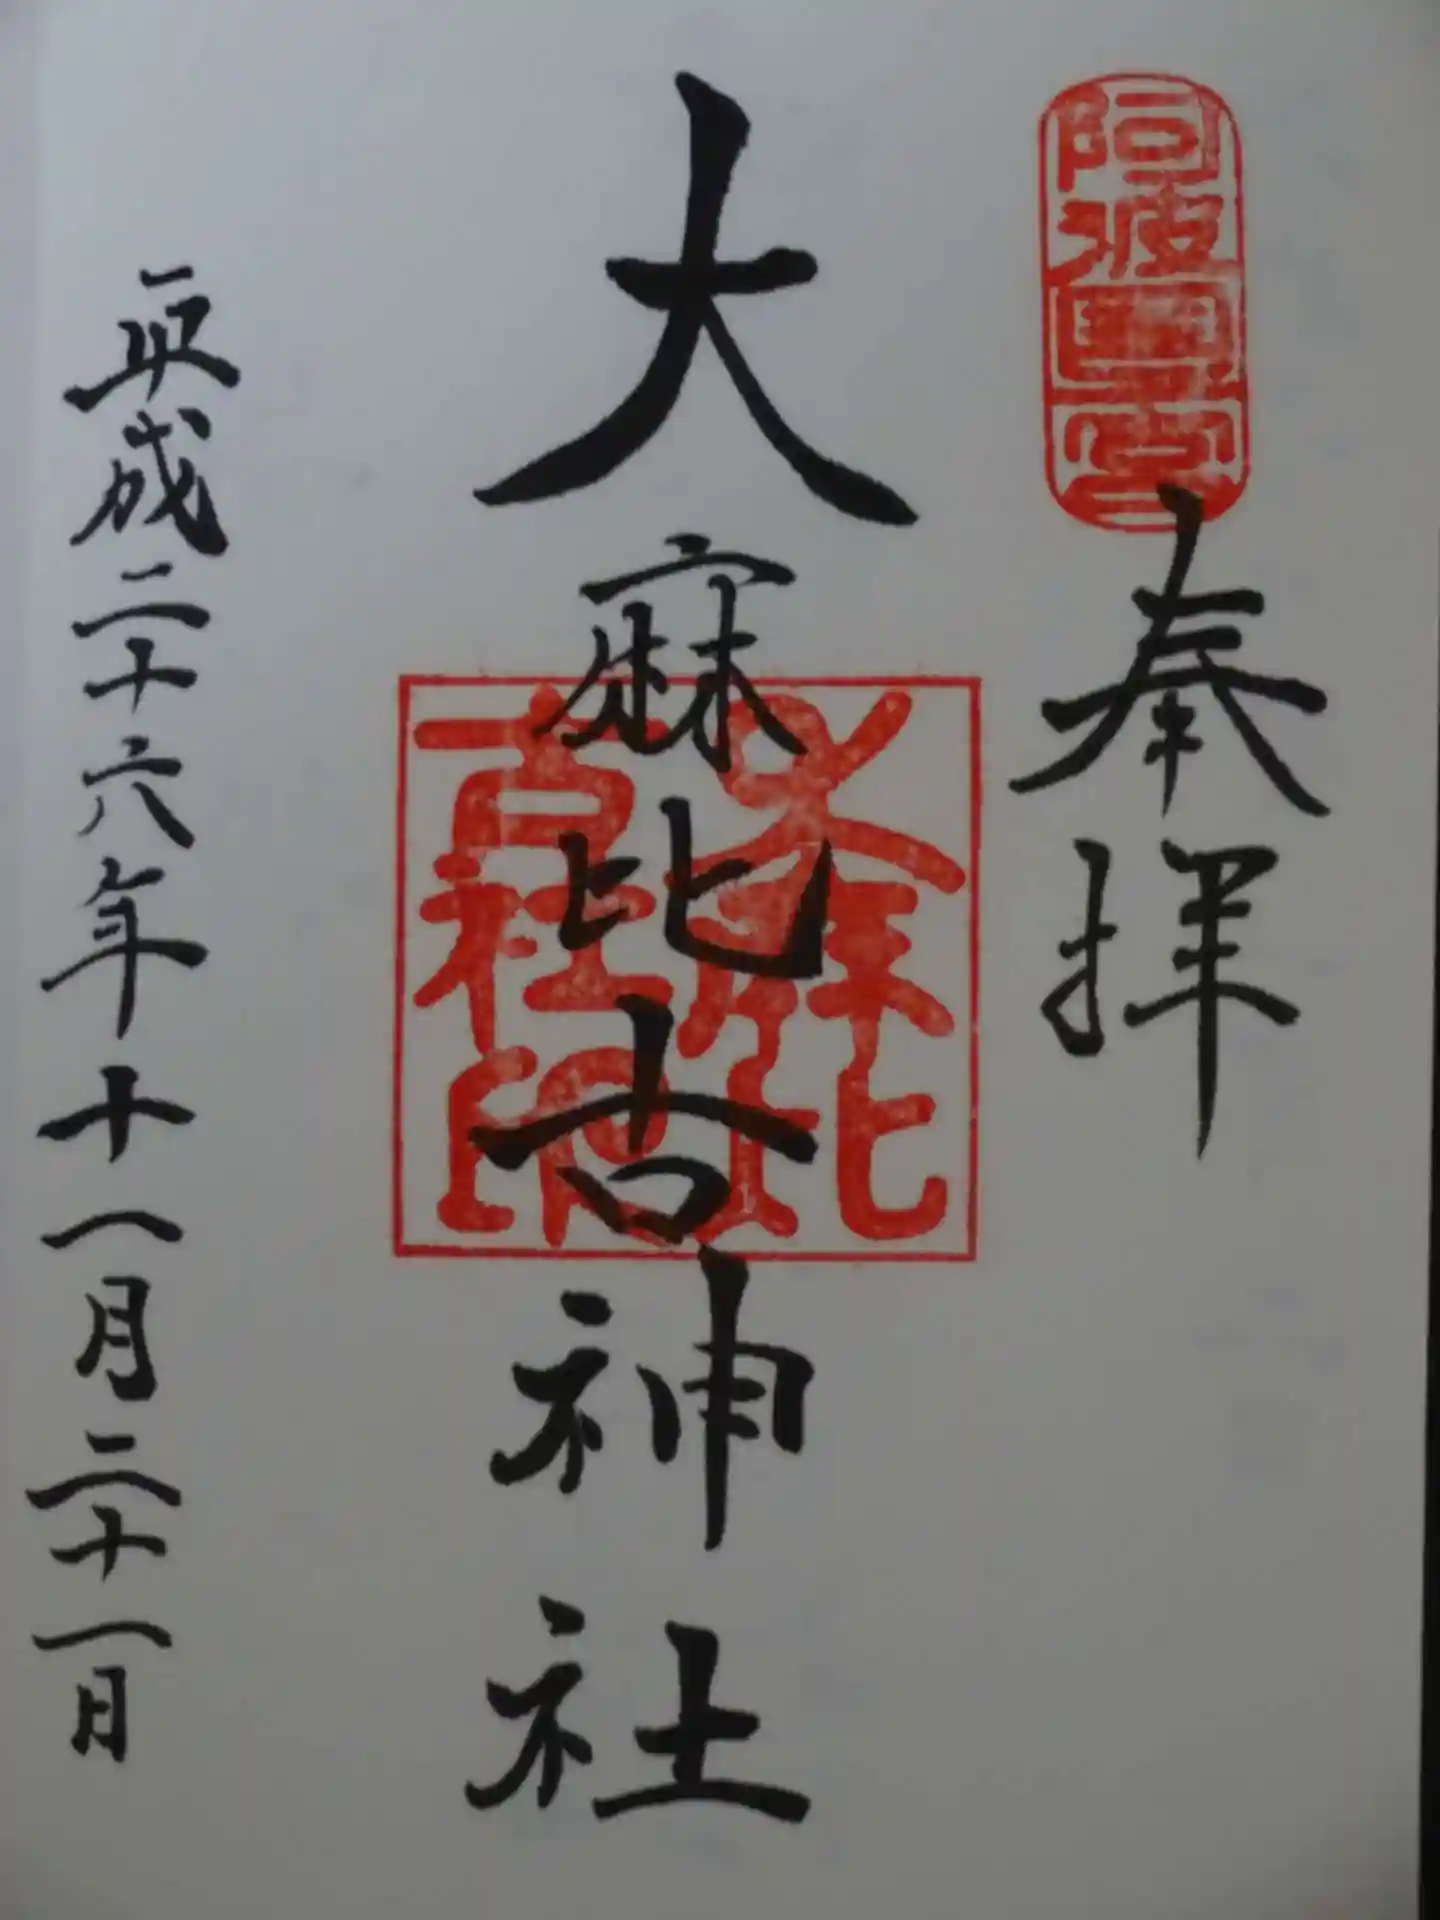 阿波國一宮
奉拝
大麻比古神社
平成二十六年十一月二十一日